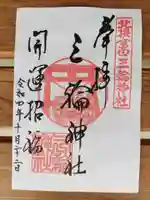 北摂富田三輪神社
奉拝
三輪神社
開運招福
令和四年十月十二日